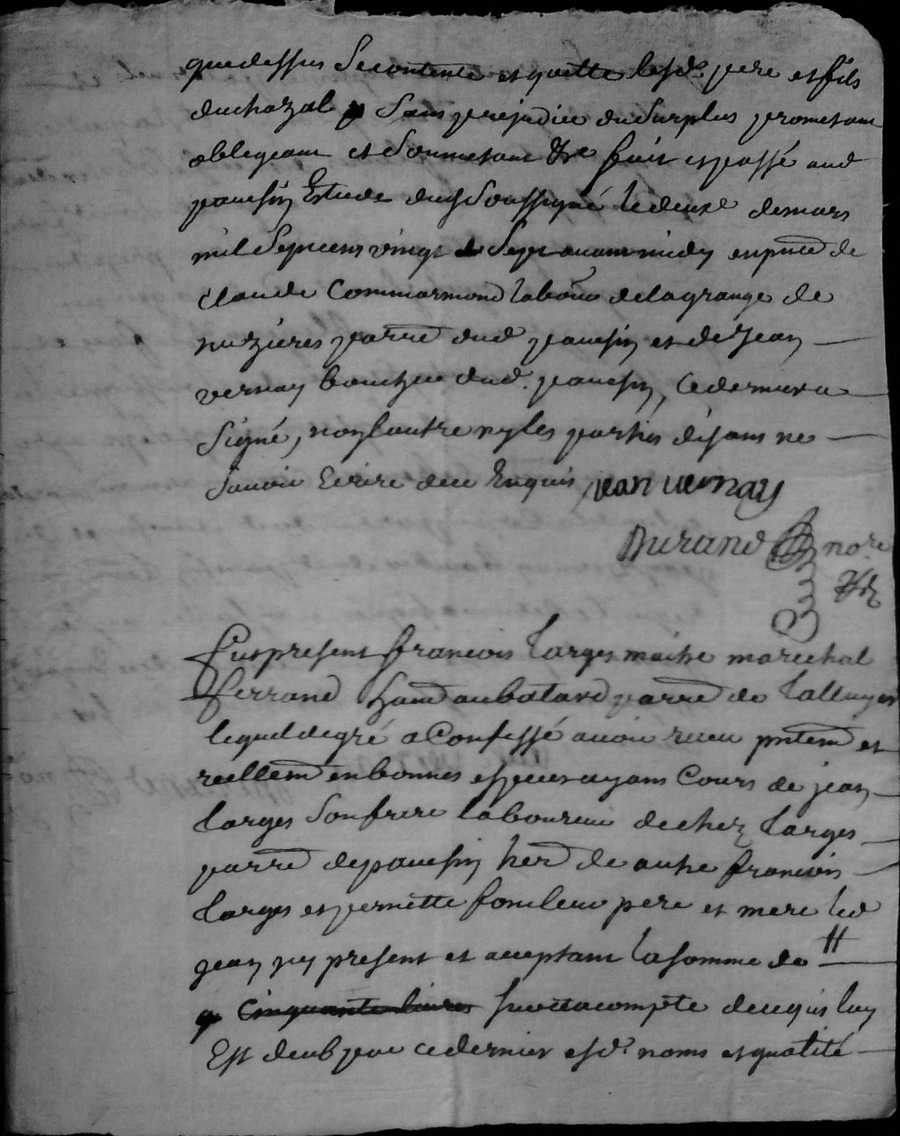 que dessus Se contente et quitte lesd. pere et fils
duchazal Sans prejudice du Surplus prometant
obligeant et Soumetant &re fait et passé aud
panissin Estude du Soussigné le deuxe de mars
mil Sept cens vingt Sept avant midy en pnce de
Claude Commarmond labour de la grange de
nuzieres parre dud panissin et de Jean
vernay boucher dud. panissin, ce dernier a
Signé, non l'autre ny les parties disans ne
Scavoir Ecrire de ce Enquis Jean vernay
Durand nore
Fut present francois Larges maitre marechal
ferrand parre de
lequel de gré a Confessé avoir receu pntemt et
reellemt en bonnes especes ayans Cours de jean
Larges Son frere laboureur de chez Larges
parre de panissin herr de autre francois
Larges et pernette leur pere et mere led
jean ycy present et acceptant la somme de
cinquante livres a compte de ce qui luy
Est deub par ce dernier esd. noms et qualité